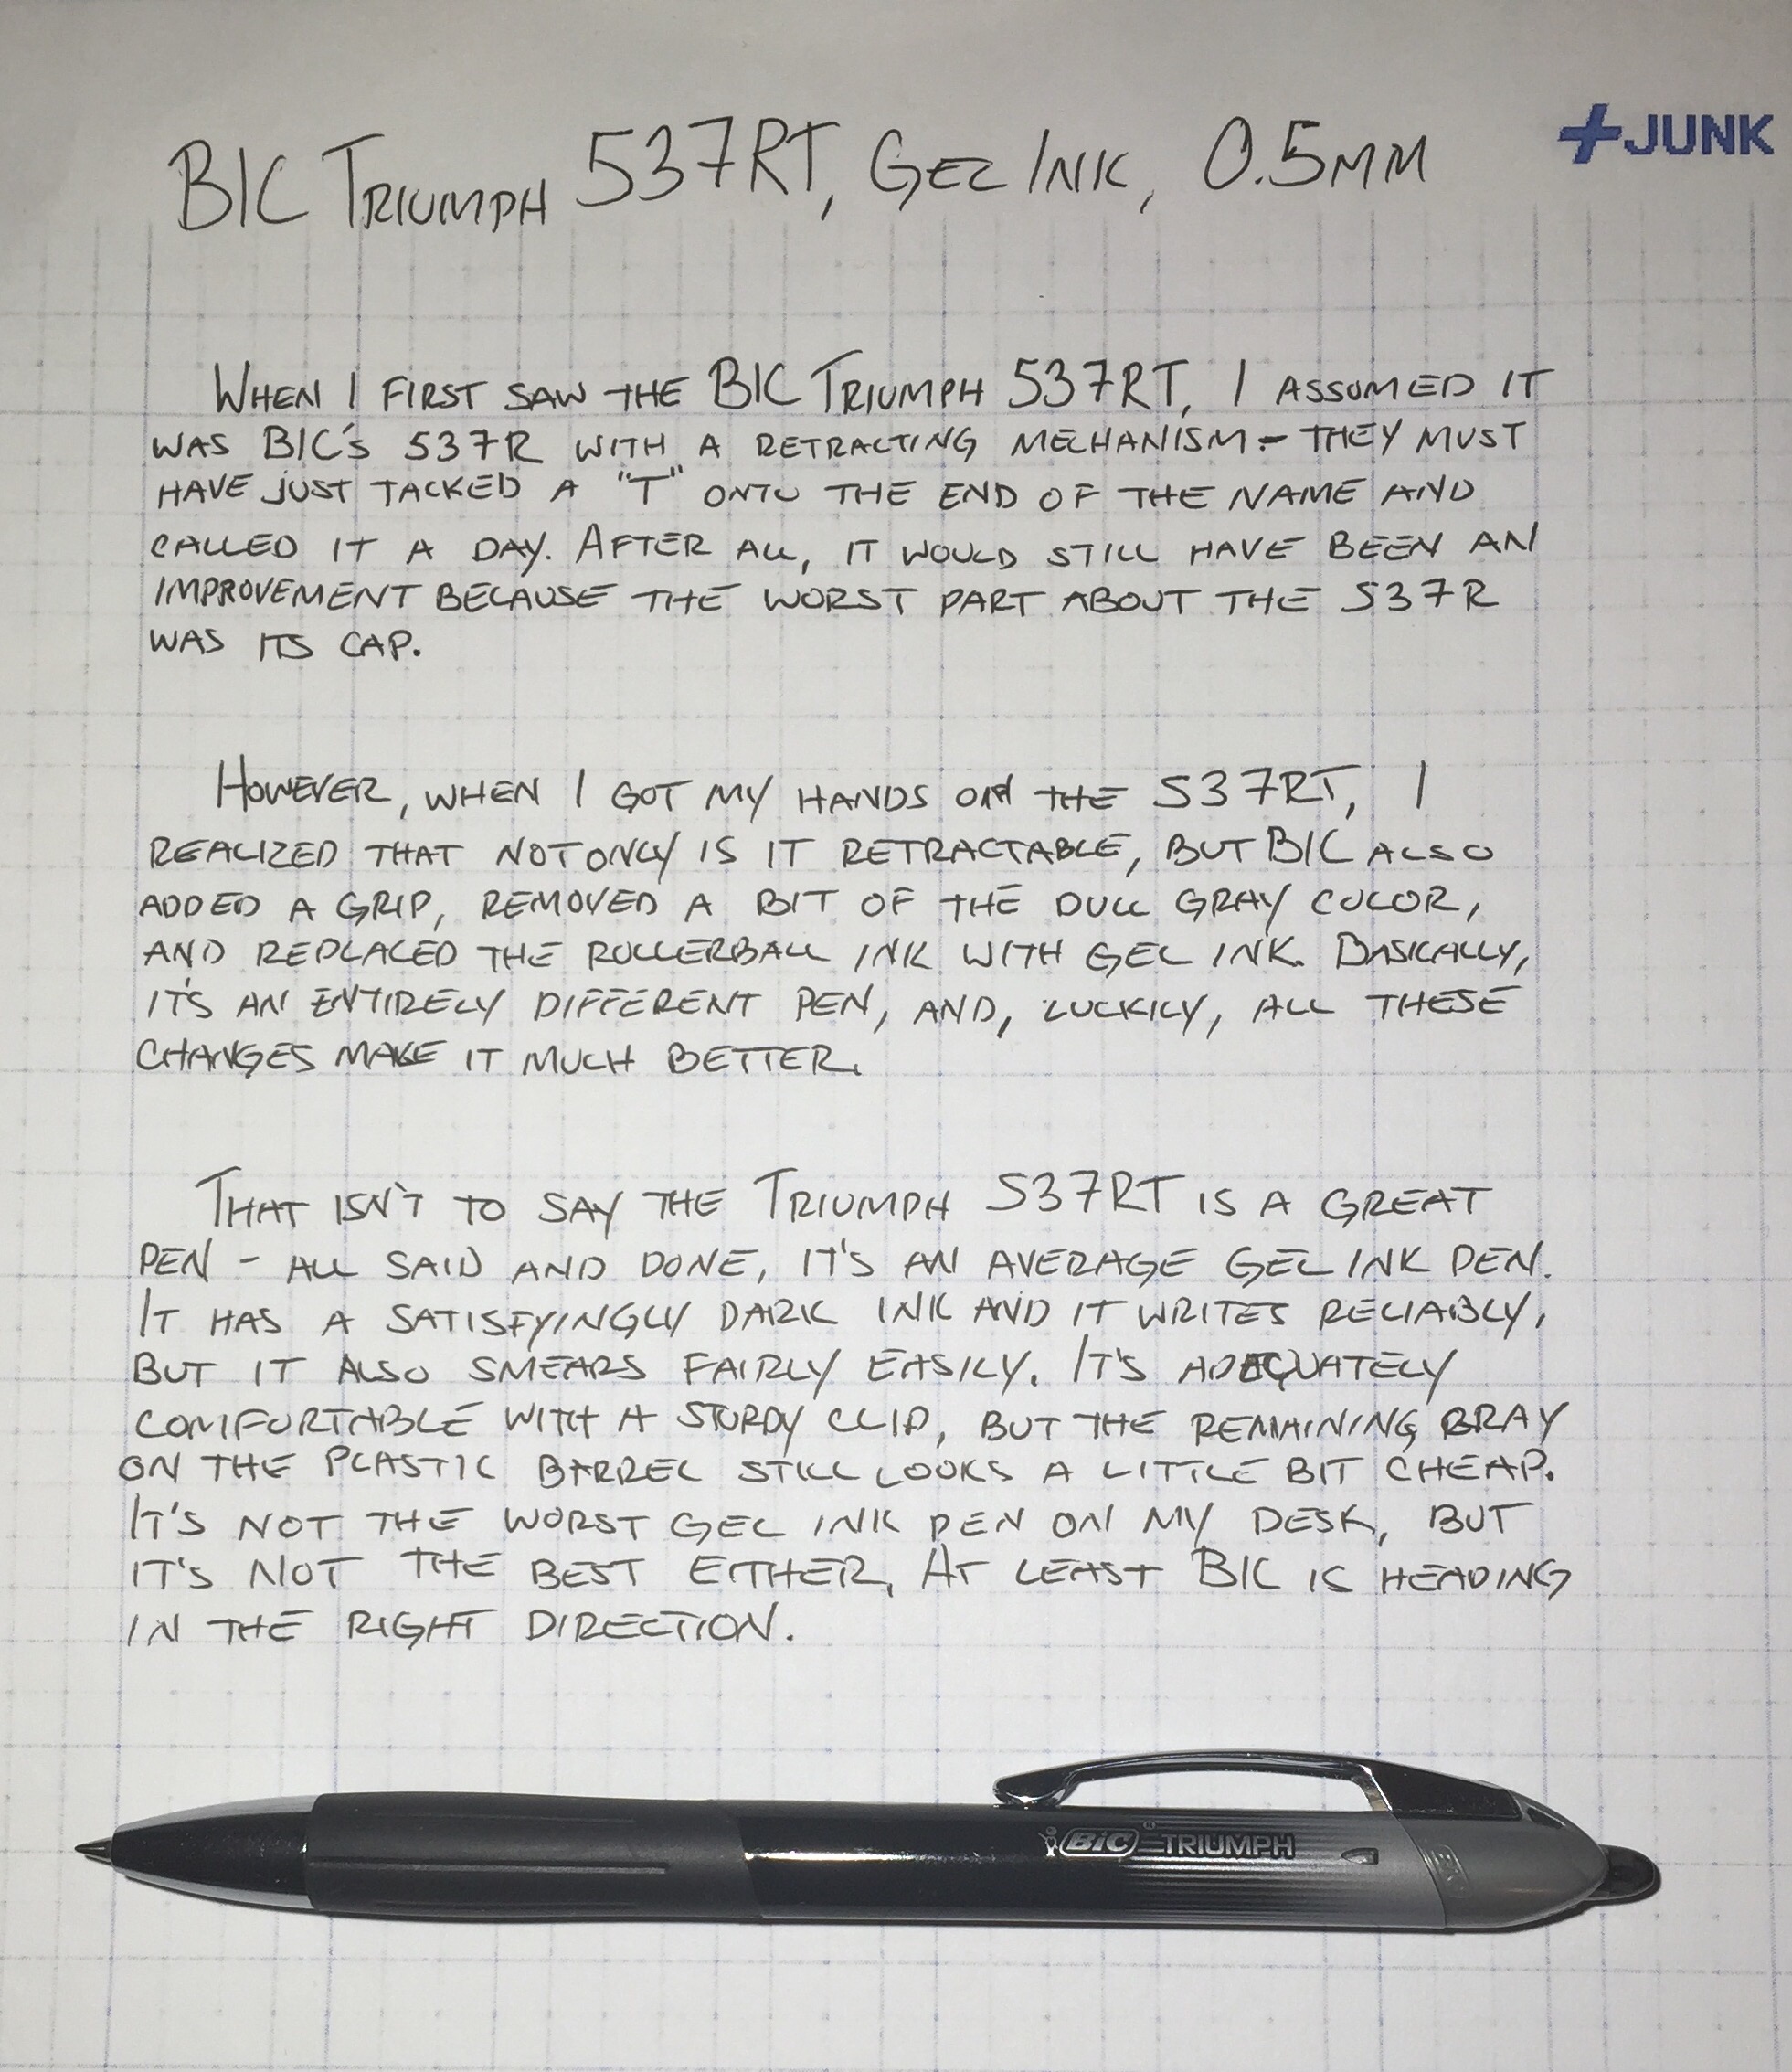 +JUNK
BIC TRIUMPH 537RT, GEL INK, 0.5MM
WHEN I FIRST SAW THE BIC TRIUMPH 537RT, I ASSUMED IT
WAS BIC'S 537R WITH A RETRACTING MECHANISM - THEY MUST
HAVE JUST TACKED A "T" ONTO THE END OF THE NAME AND
CALLED IT A DAY. AFTER ALL, IT WOULD STILL HAVE BEEN AN
IMPROVEMENT BECAUSE THE WORST PART ABOUT THE 537R
WAS ITS CAP.
HOWEVER, WHEN I GOT MY HANDS ON THE 537RT, I
REALIZED THAT NOT ONLY IS IT RETRACTABLE, BUT BIC ALSO
ADDED A GRIP, REMOVED A BIT OF THE DULL GRAY COLOR,
AND REPLACED THE ROLLERBALL INK WITH GEL INK. BASICALLY,
IT'S AN ENTIRELY DIFFERENT PEN, AND, LUCKILY, ALL THESE
CHANGES MAKE IT MUCH BETTER.
THAT ISN'T TO SAY THE TRIUMPH 537RT IS A GREAT
PEN - ALL SAID AND DONE, IT'S AN AVERAGE GEL INK PEN.
IT HAS A SATISFYINGLY DARK INK AND IT WRITES RELIABLY,
BUT IT ALSO SMEARS FAIRLY EASILY. IT'S ADEQUATELY
COMFORTABLE WITH A STURDY CLIP, BUT THE REMAINING GRAY
ON THE PLASTIC BARREL STILL LOOKS A LITTLE BIT CHEAP.
IT'S NOT THE WORST GEL INK PEN ON MY DESK, BUT
IT'S NOT THE BEST EITHER. AT LEAST BIC IS HEADING
IN THE RIGHT DIRECTION.
BIC® TRIUMPH